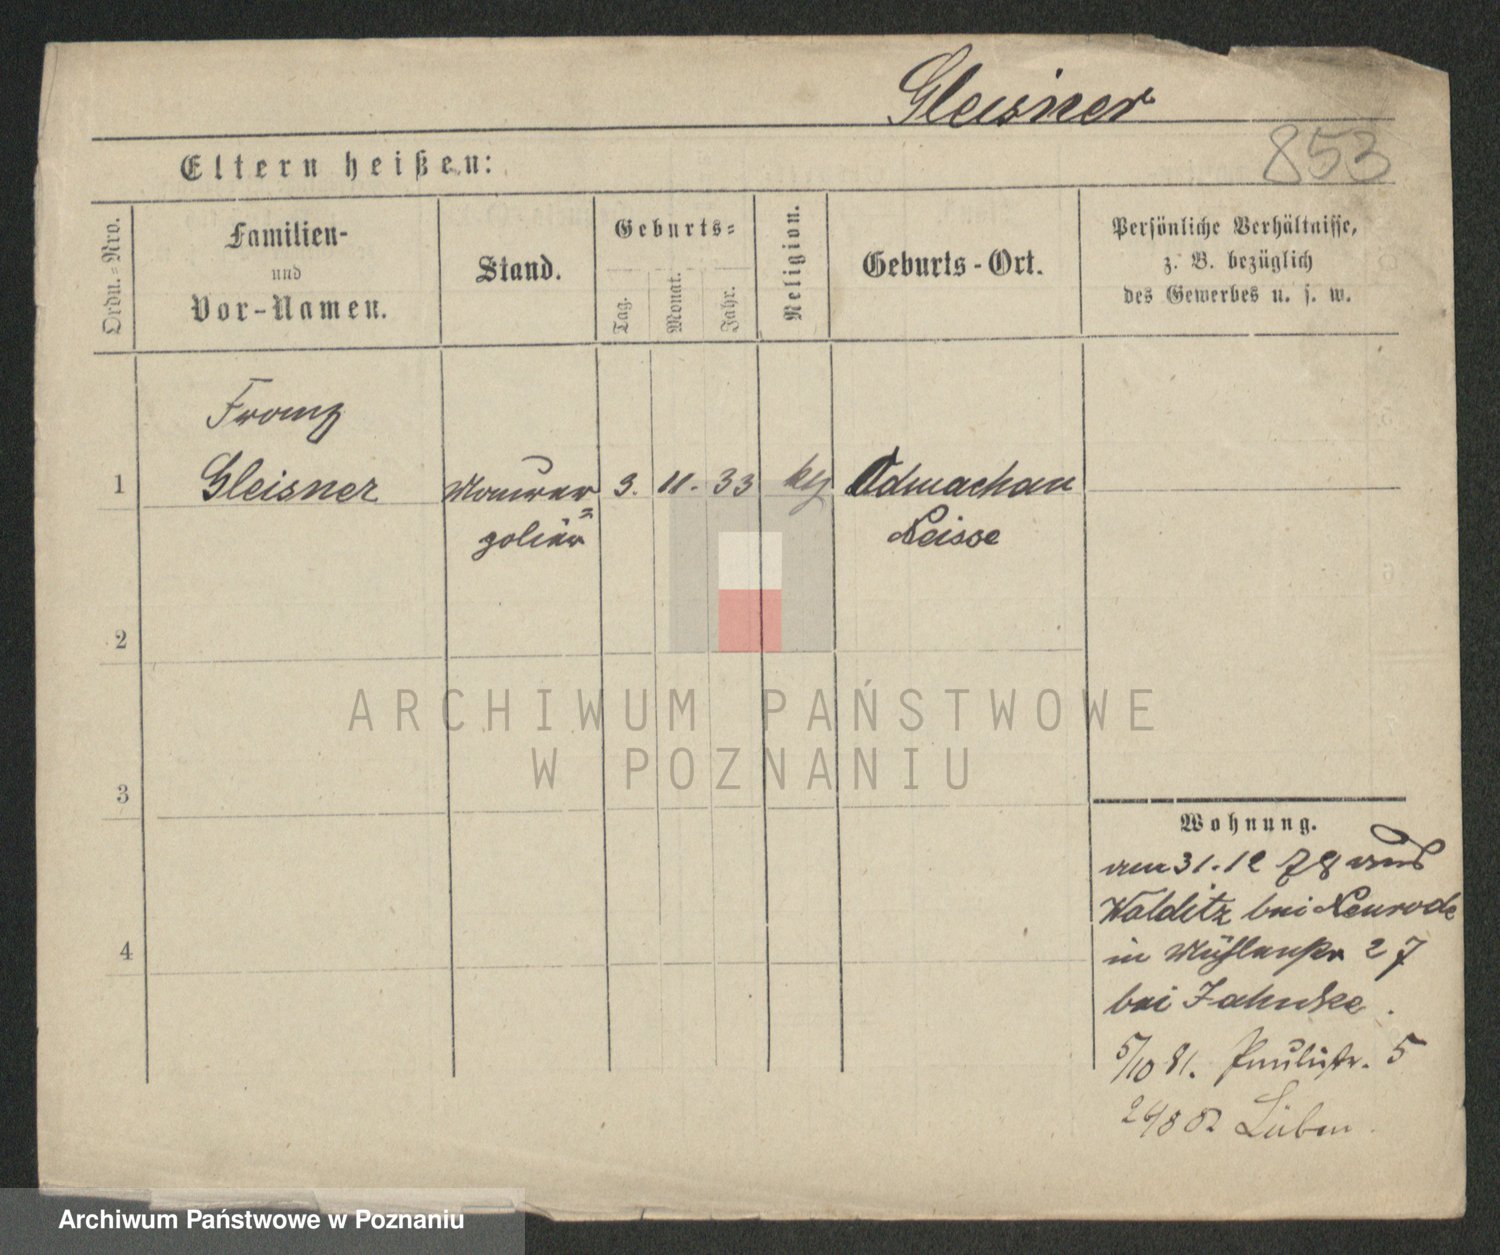 Gleisner
853
Eltern heißen:
Ordn.=Nro.
Familien-
und
Vor-Namen.
Stand.
Geburts=
Tag.
Monat.
Jahr.
Religion.
Geburts-Ort.
Persönliche Verhältnisse,
z. B. bezüglich
des Gewerbes u. s. w.
Franz
1 Gleisner Maurer= 3. 11. 33 kg Odmachau
polier Neisse
2
ARCHIWUM PAŃSTWOWE
W POZNANIU
3
Wohnung.
am 31.12 79 aus
Walditz bei Neurode
4
in Mühlenstr 27
bei Jahnske.
5/10 81. Paulistr. 5
24/8 82 Lüben.
Archiwum Państwowe w Poznaniu